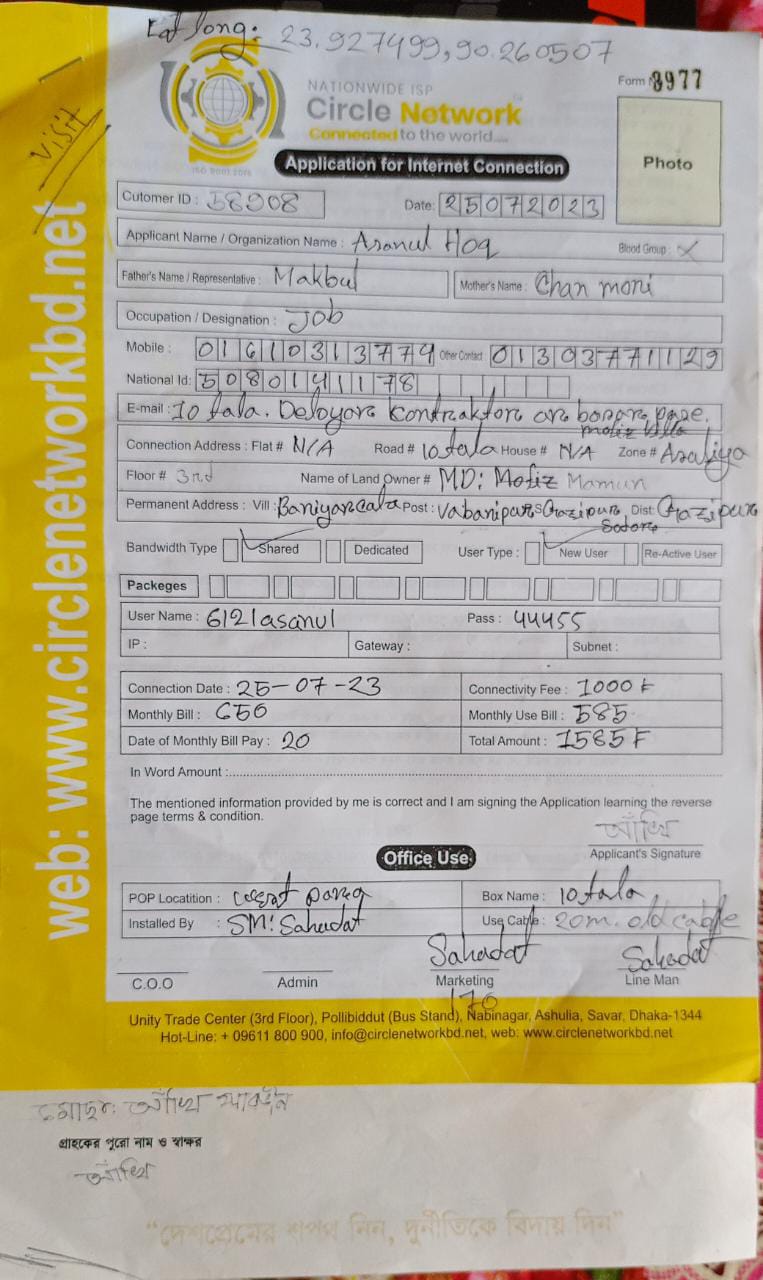 Lat long: 23.927499,90.260507
Form 8977
NATIONWIDE ISP
Circle Network
Connected to the world....
ISO 9001:2015
Application for Internet Connection
Photo
Visit
web: www.circlenetworkbd.net
Cutomer ID : 58908 Date: 25072023
Applicant Name / Organization Name : Asanul Hoq Blood Group : X
Father's Name / Representative : Makbul Mother's Name : Chan moni
Occupation / Designation : Job
Mobile : 01610313774 Other Contact 01393771129
National Id: 5080141178
E-mail : 10 tala. Deloyar kontraktor ar basar pase.
mofiz villa
Connection Address : Flat # N/A Road # 10 tala House # N/A Zone # Asuliya
Floor # 3rd Name of Land Owner # MD: Mofiz Mamun
Permanent Address : Vill : Baniyarcala Post : Vabanipur PS Gazipur Dist: Gazipur
Sador
Bandwidth Type Shared Dedicated User Type : New User Re-Active User
Packeges
User Name : 6121asanul Pass : 44455
IP : Gateway : Subnet :
Connection Date : 25-07-23 Connectivity Fee : 1000 ৳
Monthly Bill : 650 Monthly Use Bill : 585
Date of Monthly Bill Pay : 20 Total Amount : 1585 ৳
In Word Amount :
The mentioned information provided by me is correct and I am signing the Application learning the reverse
page terms & condition.
আঁখি
Applicant's Signature
Office Use
POP Locatition : Box Name : 10 tala
Installed By : SM: Sahadat Use Cable : 20m. old cable
Sahadat Sahadat
C.O.O Admin Marketing Line Man
170
Unity Trade Center (3rd Floor), Pollibiddut (Bus Stand), Nabinagar, Ashulia, Savar, Dhaka-1344
Hot-Line: + 09611 800 900, info@circlenetworkbd.net, web: www.circlenetworkbd.net
মোছাঃ আঁখি
গ্রাহকের পুরো নাম ও স্বাক্ষর
আঁখি
“দেশপ্রেমের শপথ নিন, দুর্নীতিকে বিদায় দিন”